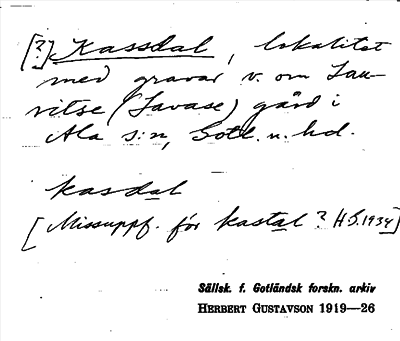 [?] Kassdal, lokalitet
med gravar v. om Lau-
ritse (Lavase) gård i
Ala s:n, Gotl. n. hd.
kasdal
[Missuppf. för kastal? HG. 1934]
Sällsk. f. Gotländsk forskn. arkiv
HERBERT GUSTAVSON 1919—26